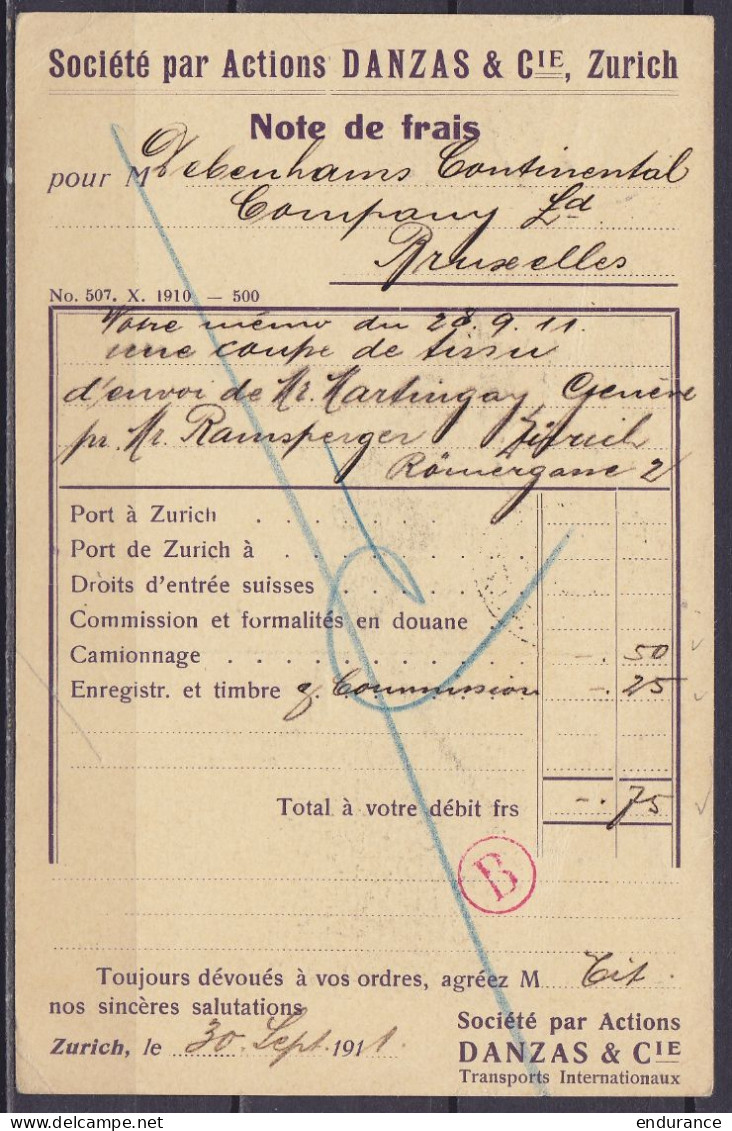 Société par Actions DANZAS & CIE, Zurich
Note de frais
pour M Debenhams Continental
Company Ld
Bruxelles
No. 507. X. 1910 — 500
Votre mémo du 28.9.11.
une coupe de tissu
d'envoi de Mr. Martingay, Genève
pr. Mr. Ramsperger Zürich
Römergasse 2
Port à Zurich
Port de Zurich à
Droits d'entrée suisses
Commission et formalités en douane
Camionnage —. 50
Enregistr. et timbre & Commission —. 25
Total à votre débit frs —. 75
B
Toujours dévoués à vos ordres, agréez M Tit.
nos sincères salutations
Zurich, le 30 Sept. 1911.
Société par Actions
DANZAS & CIE
Transports Internationaux
endurance